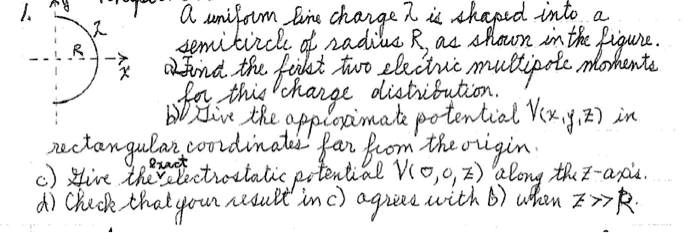 1. y A uniform line charge λ is shaped into a
λ semicircle of radius R, as shown in the figure.
R x a) Find the first two electric multipole moments
for this charge distribution.
b) Give the approximate potential V(x,y,z) in
rectangular coordinates far from the origin.
c) Give the exact electrostatic potential V(0,0,z) along the z-axis.
d) Check that your result in c) agrees with b) when z >> R.